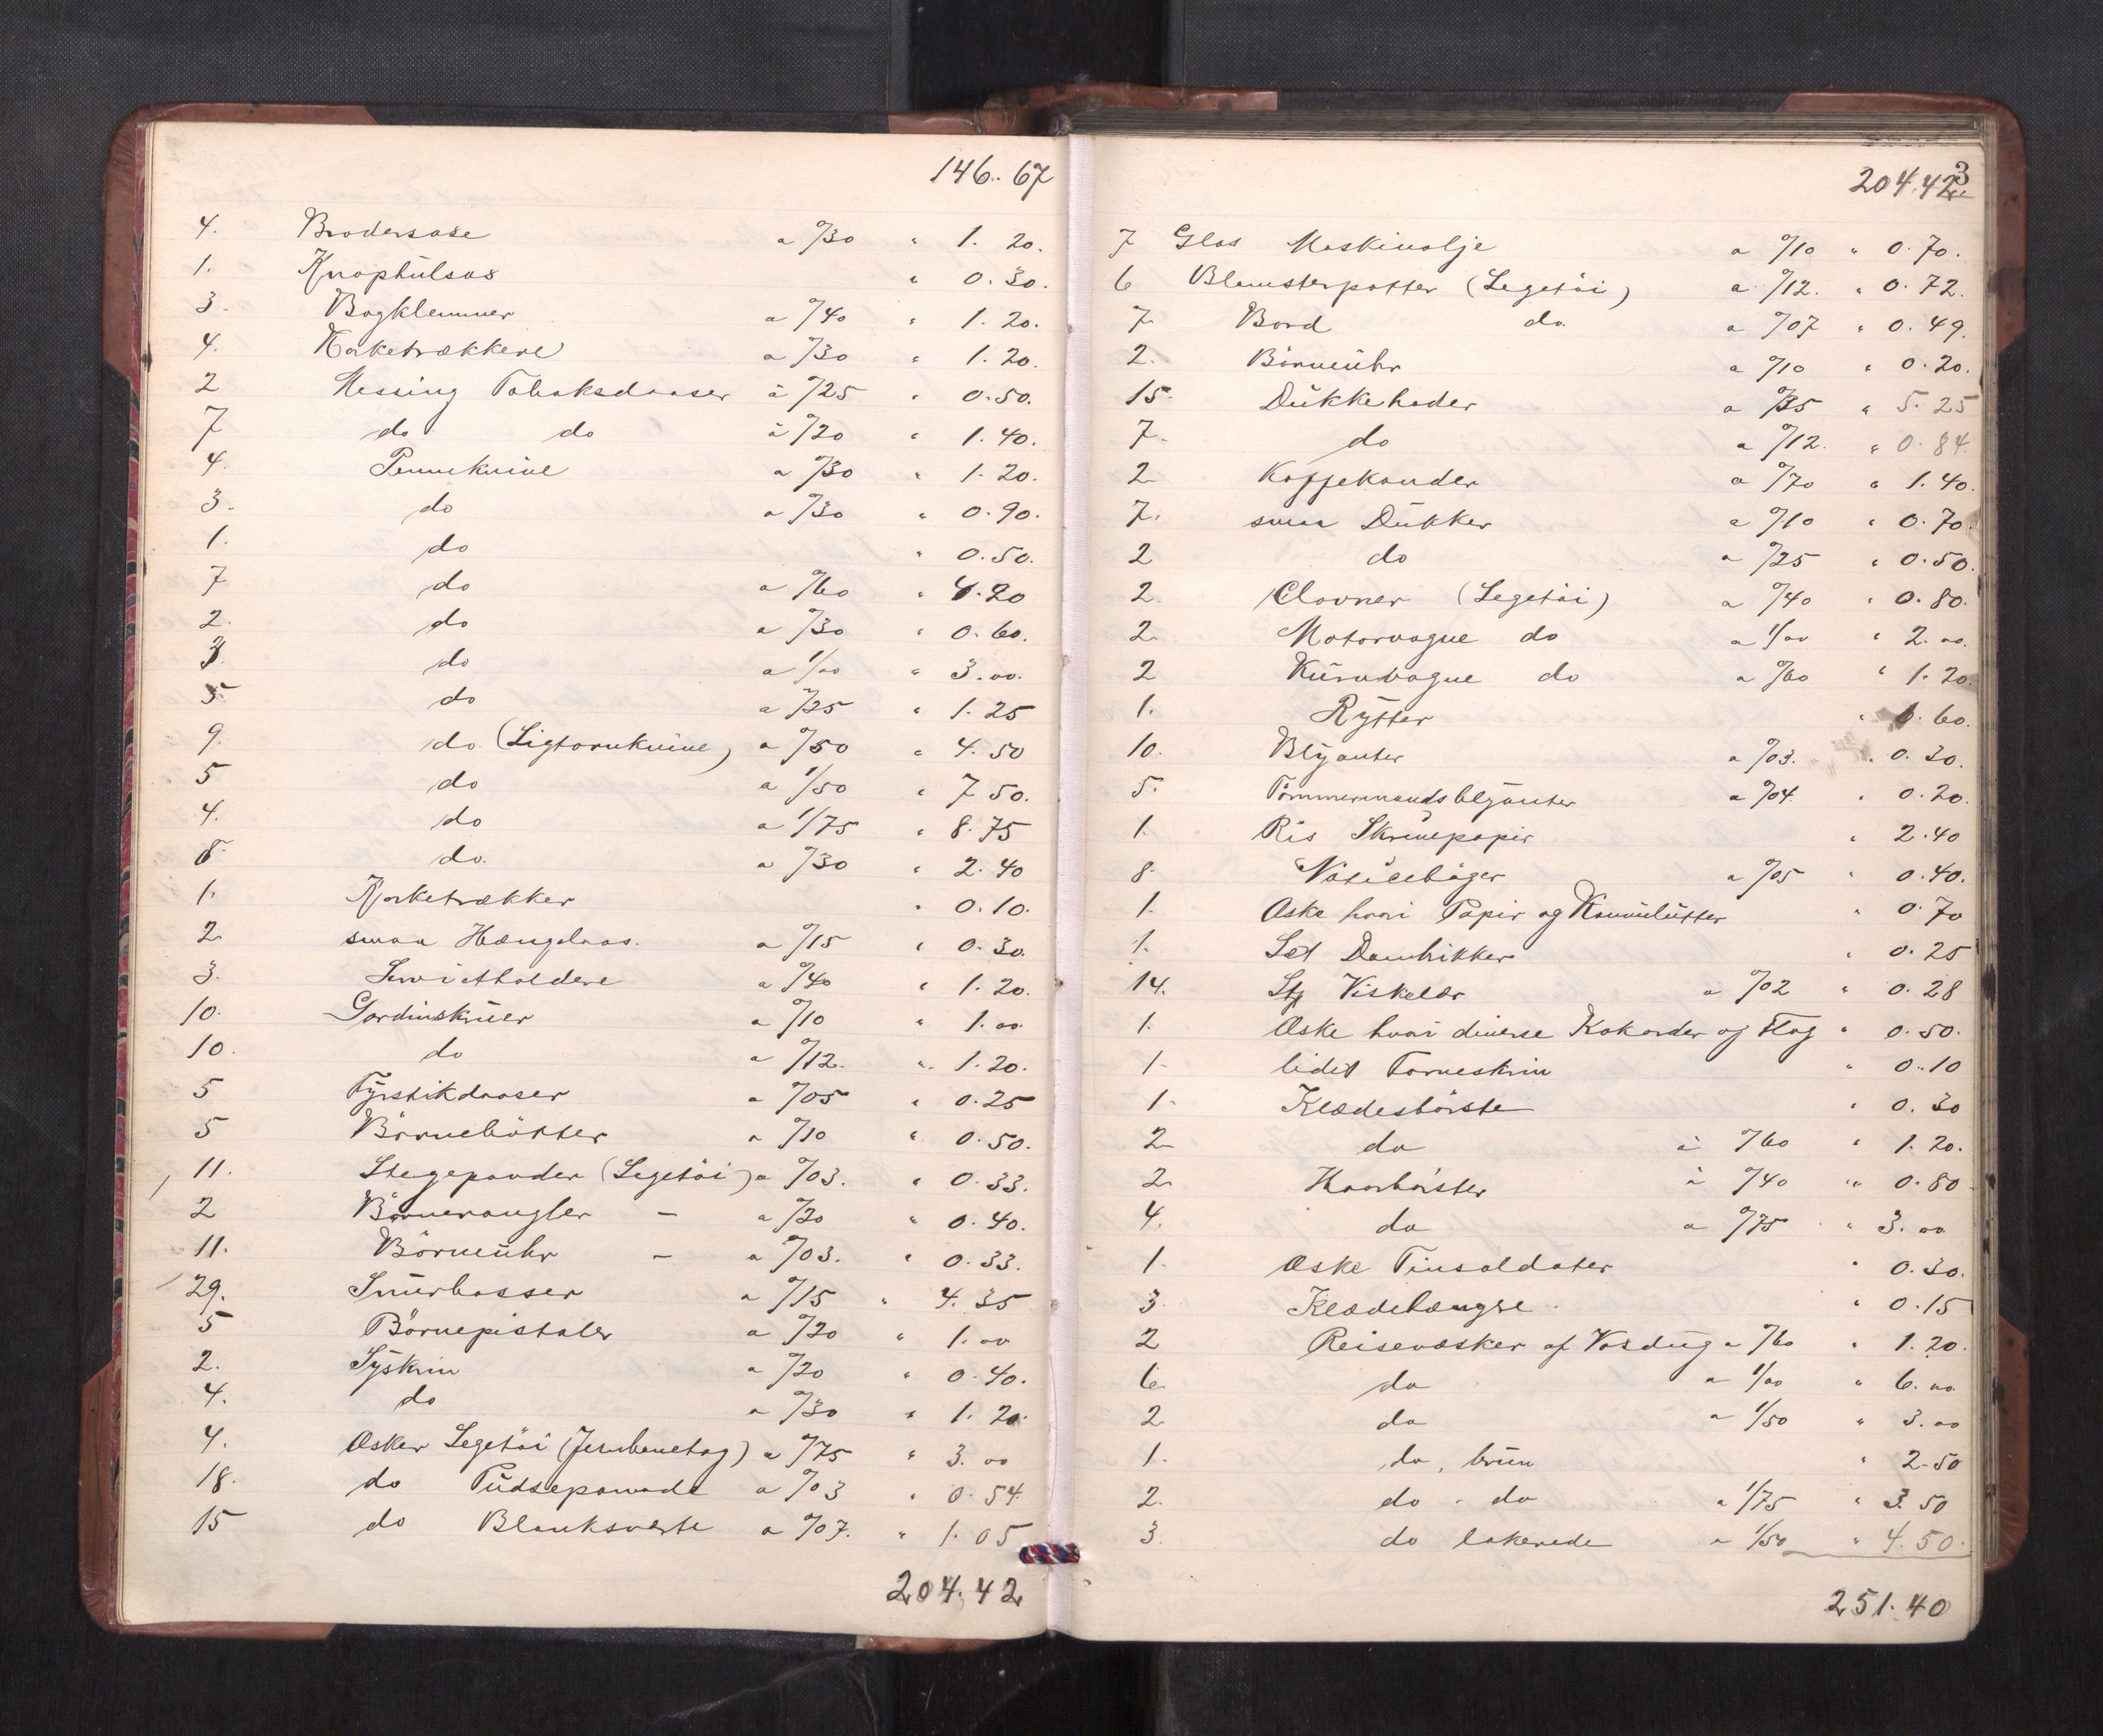 146.67
4. Brodersaxe a 0/30 " 1.20.
1. Knaphulsax " 0.30.
3. Bogklemmer a 0/40 " 1.20.
4. Korketrækkere a 0/30 " 1.20.
2 Messing Tobaksdaaser à 0/25 " 0.50.
7 do do à 0/20 " 1.40.
4. Pennknive a 0/30 " 1.20.
3. do a 0/30 " 0.90.
1. do " 0.50.
7 do a 0/60 " 4.20
2. do a 0/30 " 0.60.
3 do a 1/00 " 3.00.
5 do a 0/25 " 1.25
9. do (Ligtornknive) a 0/50 " 4.50
5 do a 1/50 " 7 50.
4. do a 1/75 " 8.75
8 do. a 0/30 " 2.40
1. Korketrækker " 0.10.
2 smaa Hængelaas. a 0/15 " 0.30.
3. Servietholdere a 0/40 " 1.20.
10. Gardinskruer a 0/10 " 1.00
10. do a 0/12. " 1.20.
5 Fyrstikdaaser a 0/05 " 0.25
5 Børnebøtter a 0/10 " 0.50.
11. Stegepander (Legetøi) a 0/03. " 0.33.
2 Børnerangler - a 0/20 " 0.40.
11. Børneuhr - a 0/03. " 0.33.
29. Snurbasser a 0/15 " 4.35
5 Børnepistoler a 0/20 " 1.00
2. Syskrin a 0/20 " 0.40.
4. do a 0/30 " 1.20.
4. Æsker Legetøi (Jernbanetog) a 0/75 " 3.00
18. do Pudsepomade a 0/03 " 0.54.
15 do Blanksverte a 0/07. " 1.05
204.42
3
204.42
7 Glas Maskinolje a 0/10 " 0.70.
6 Blomsterpotter (Legetøi) a 0/12. " 0.72.
7 Bord do. a 0/07 " 0.49.
2. Børneuhr a 0/10 " 0.20.
15. Dukkehoder a 0/35 " 5.25
7. do a 0/12. " 0.84.
2 Kaffekander a 0/70 " 1.40.
7. smaa Dukker a 0/10 " 0.70
2 do a 0/25 " 0.50.
2. Clovner (Legetøi) a 0/40 " 0.80.
2. Motorvogne do a 1/00 " 2.00.
2 Kurvvogne do a 0/60 " 1.20.
1. Rytter " 0.60.
10. Blyanter a 0/03. " 0.30.
5. Tømmermandsblyanter a 0/04. " 0.20.
1. Ris Skrivepapir " 2.40
8. Noticebøger a 0/05 " 0.40.
1. Æske hvori Papir og Konvolutter " 0.70
1. Set Dambrikker " 0.25
14. Stk Viskelær a 0/02 " 0.28
1. Æske hvori diverse Kokarder og Flag " 0.50.
1. lidet Farveskrin " 0.10
1. Klædesbørste " 0.30
2 do à 0/60 " 1.20.
2 Haarbørster à 0/40 " 0.80
4. do a 0/75 " 3.00
1. Æske Tinsoldater " 0.30.
3. Klædehængere " 0.15
2 Reisevæsker af Voxdug a 0/60 " 1.20.
6 do a 1/00 " 6.00
2 do a 1/50 " 3.00
1. do, brun " 2.50
2. do " do a 1/75 " 3.50
3. do lakerede a 1/50 " 4.50.
251.40